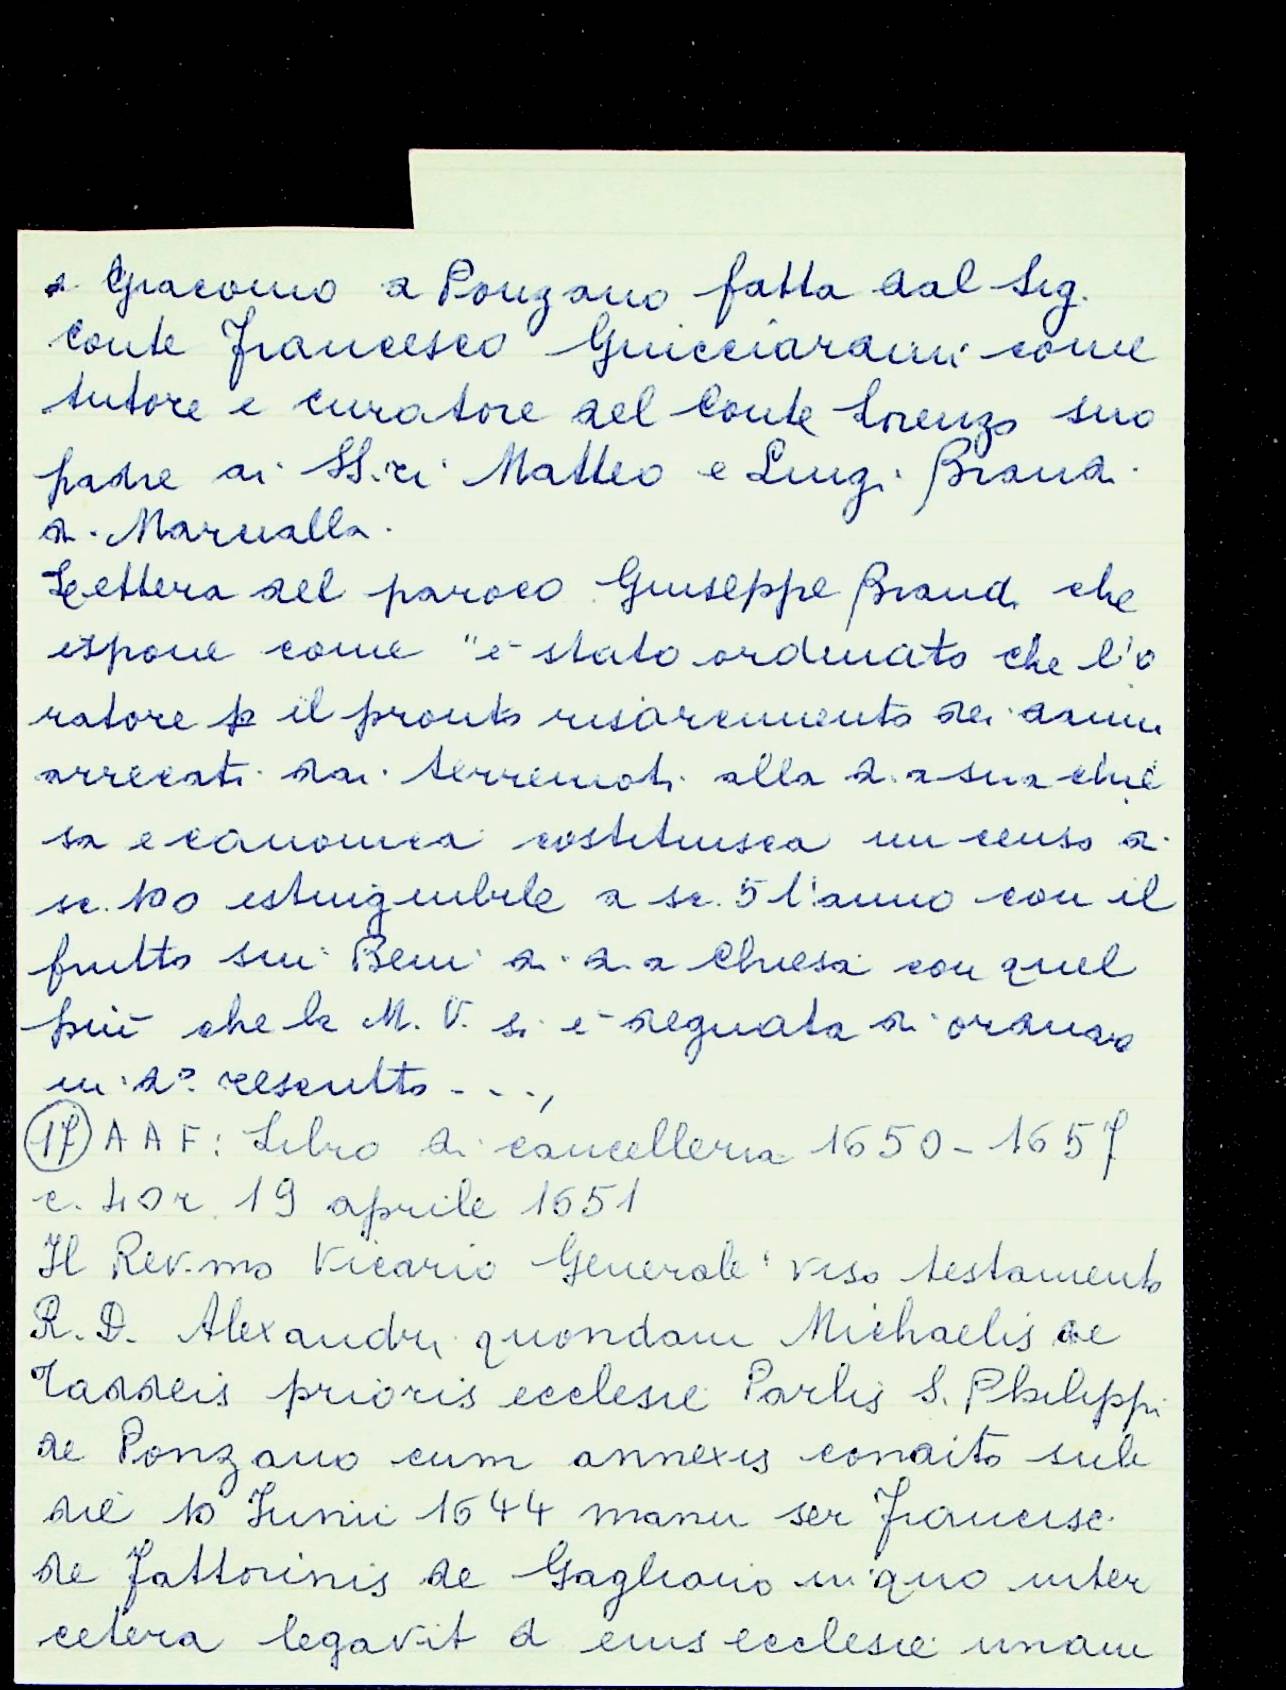 s. Giacomo a Ponzano fatta dal Sig.
Conte Francesco Guicciardini come
tutore e curatore del Conte Lorenzo suo
padre ai SS.ri Matteo e Luigi Brandi
di Marualla.
Lettera del paroco Giuseppe Brandi che
espone come "è stato ordinato che l'o
ratore p il pronto risarcimento dei danni
arrecati dai terremoti alla d.a sua chie
sa e canonica costituisca un censo di
sc. 100 estinguibile a sc. 5 l'anno con il
frutto sui Beni di d.a Chiesa con quel
più che la M. V. si è degnata di ordinare
in d.° rescritto...,
17 A A F: Libro di cancelleria 1650-1657
c. 40r. 19 aprile 1651
Il Rev.mo Vicario Generale "viso testamento
R. D. Alexandri quondam Michaelis de
Taddeis prioris ecclesie Parlis S. Philippi
de Ponzano cum annexis condito sub
die 10 Junii 1644 manu ser Francisc.
de Fattorinis de Gagliano in quo inter
cetera legavit d eius ecclesie unam